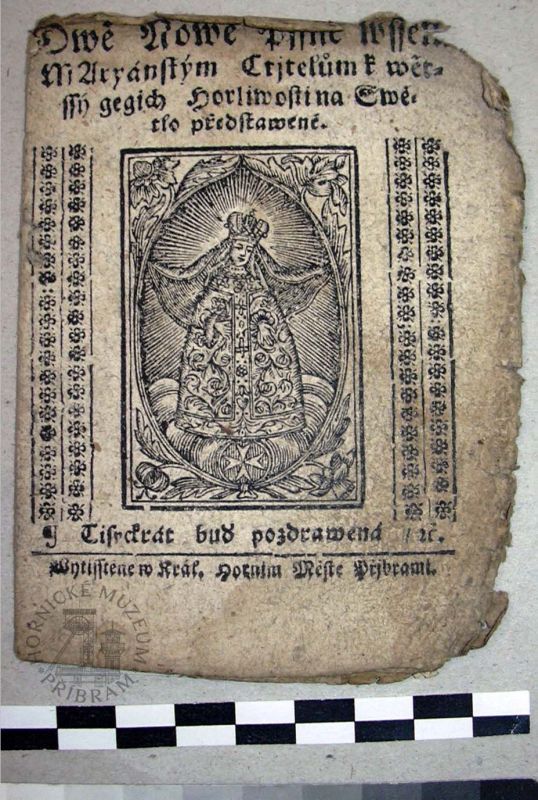 Dwě Nowé Pjsně wssem
MAryánským Ctjtelům k wět-
ssý gegich Horliwosti na Swě-
tlo předstawené.
¶ Tisyckrát buď pozdrawená / ꝛc.
Wytisstěné w Král. Hornim Městě Přjbrami.
HORNICKÉ MUZEUM
PŘÍBRAM